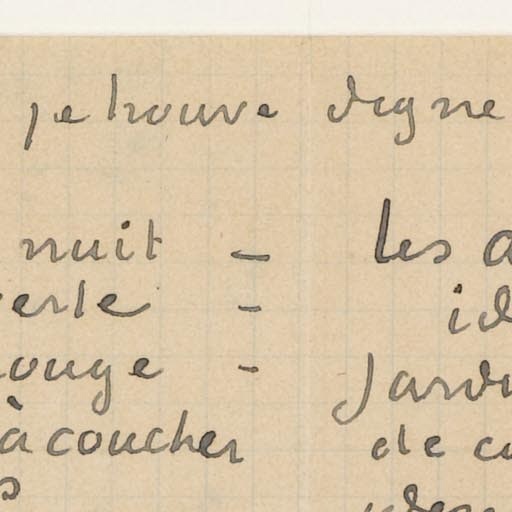 je trouve digne
nuit - les a
verte - id
rouge - Jardi
à coucher de c
s